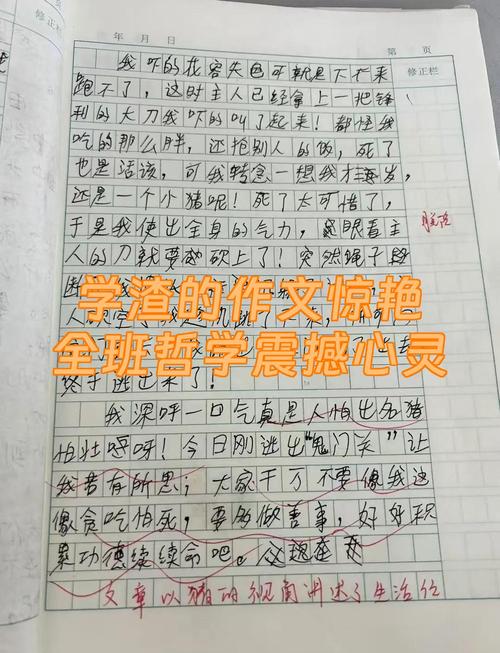 年 月 日
第 页
修正栏
我吓的花容失色可就是下不来
跑不了，这时主人已经拿上一把锋
利的大刀我吓的叫了起来！都怪我
吃的那么胖，还抢别人的饭，死了
也是活该，可我转念一想我才
还是一个小猪呢！死了太可惜了，
于是我使出全身的气力，眼看主
人的刀就要砍上了！突然绳子
学渣的作文惊艳
全班哲学震撼心灵
终于逃出来了！
我深呼一口气真是人怕出名猪
怕壮呀！今日刚逃出"鬼门关"让
我若有所思；大家千万不要像我这
像贪吃怕死，要多做善事，好好积
累功德续续命吧。
文章以猪的视角讲述了生活经